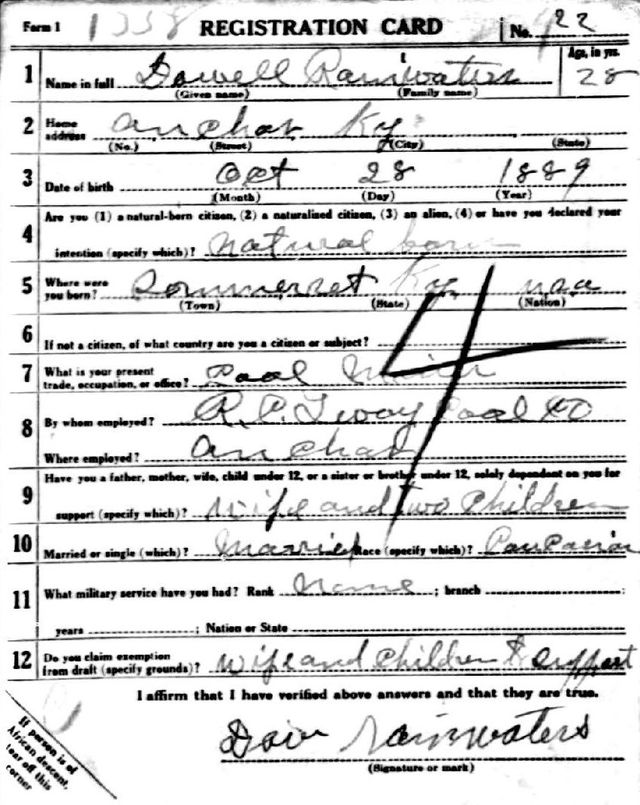 Form 1 1338 REGISTRATION CARD No. 22
1 Name in full Dowell Rainwaters Age, in yrs. 28
(Given name) (Family name)
2 Home address Anchor Ky
(No.) (Street) (City) (State)
3 Date of birth Oct 28 1889
(Month) (Day) (Year)
4 Are you (1) a natural-born citizen, (2) a naturalized citizen, (3) an alien, (4) or have you declared your
intention (specify which)? Natural born
5 Where were you born? Sommerset Ky
(Town) (State) (Nation)
6 If not a citizen, of what country are you a citizen or subject?
7 What is your present trade, occupation, or office? Coal Miner
8 By whom employed? Coal Co
Where employed? Anchor
9 Have you a father, mother, wife, child under 12, or a sister or brother under 12, solely dependent on you for
support (specify which)? Wife and two Children
10 Married or single (which)? Married Race (specify which)? Caucasian
11 What military service have you had? Rank None ; branch ;
years ; Nation or State
12 Do you claim exemption from draft (specify grounds)? Wife and Children to support
I affirm that I have verified above answers and that they are true.
Rainwaters
(Signature or mark)
If person is of
African descent,
tear off this
corner
4